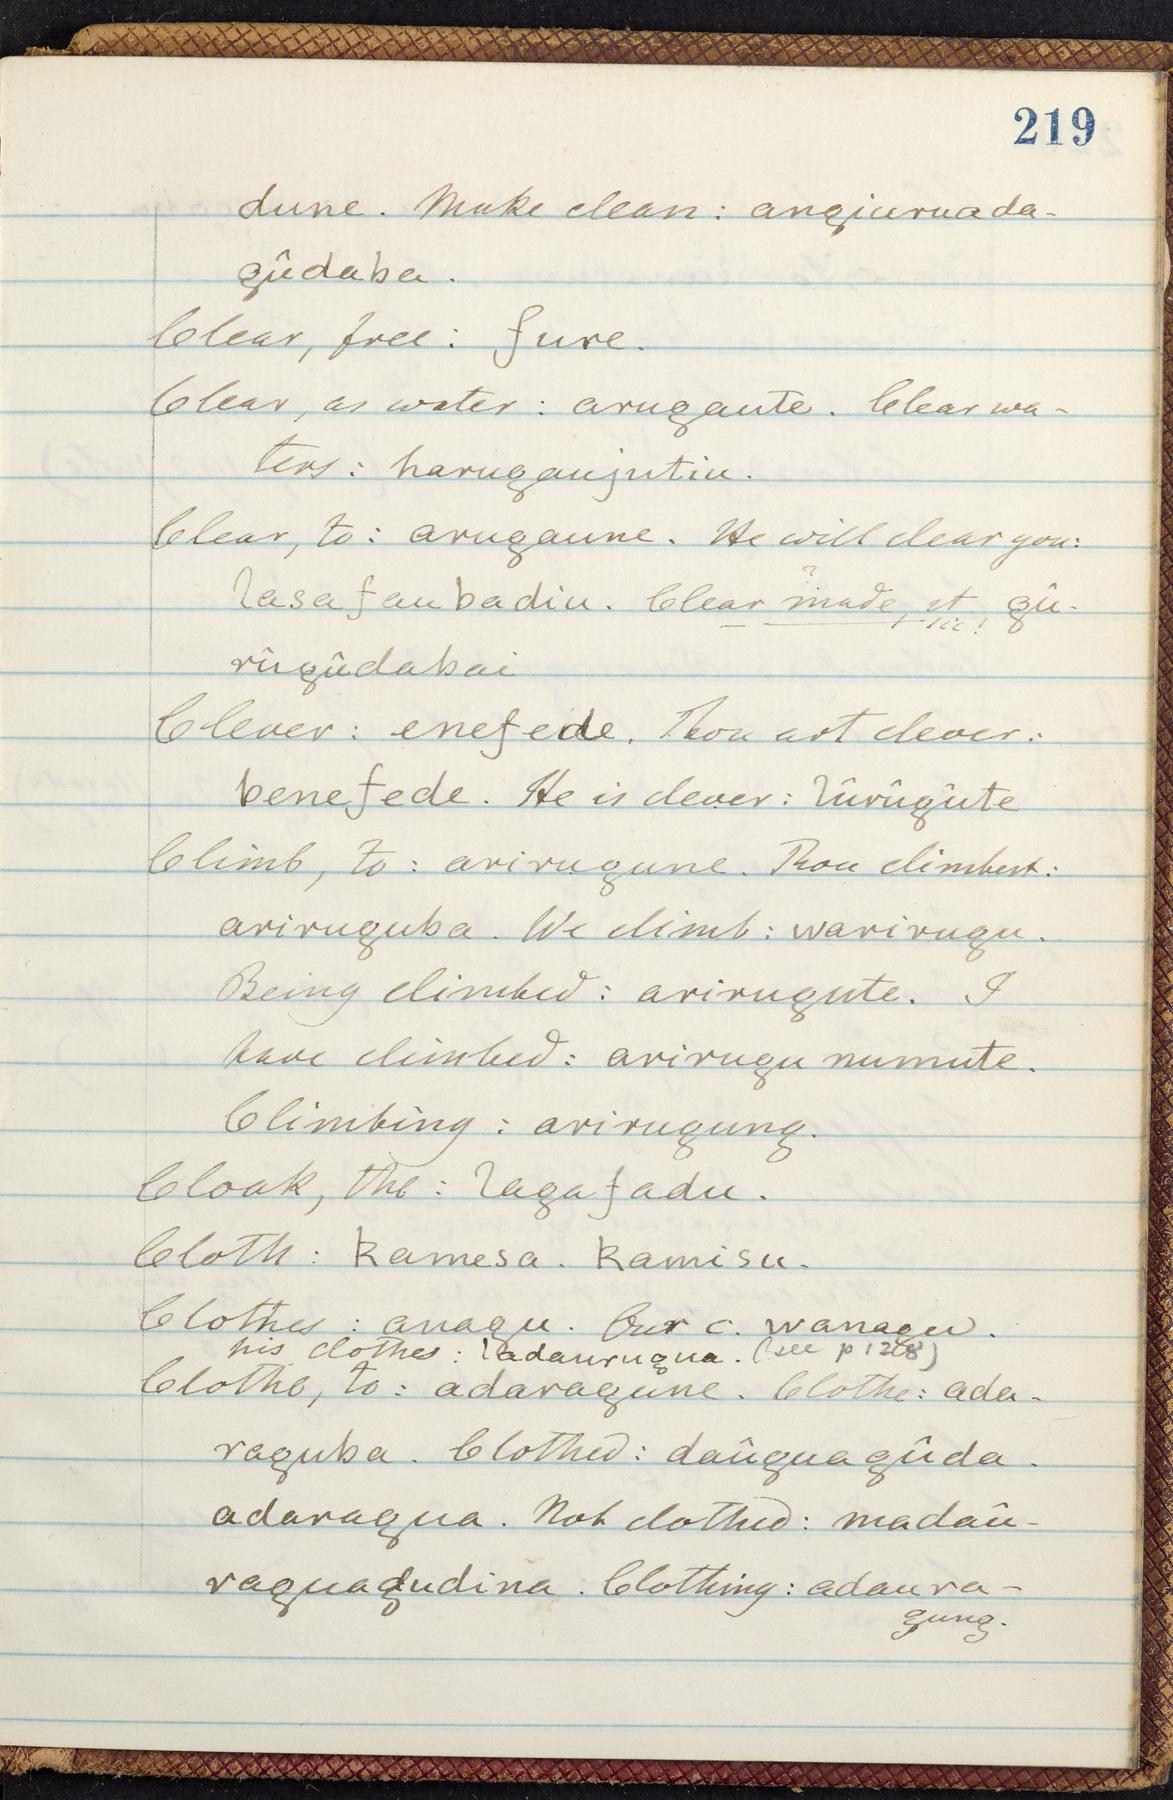 219
dune. Make clean: angiuruada-
gûdaba.
Clear, free: fure.
Clear, as water: arugaute. Clear wa-
ters: harugaujutiu.
Clear, to: arugaune. He will clear you:
lasafaubadiu. Clear made, it gû-
? sic!
rûgûdabai
Clever: enefede. Thou art clever:
benefede. He is clever: lûrûgûte
Climb, to: arirugune. Thou climbest:
ariruguba. We climb: warirugu.
Being climbed: arirugute. I
have climbed: arirugu numute.
Climbing: arirugung.
Cloak, the: lagafadu.
Cloth: kamesa. kamisu.
Clothes: anagu. Our c. wanagu.
his clothes: ladaurugua. (see p 128)
Clothe, to: adaragune. Clothe: ada-
raguba. Clothed: daûguagûda.
adaragua. Not clothed: madaû-
raguagudina. Clothing: adaura-
gung.